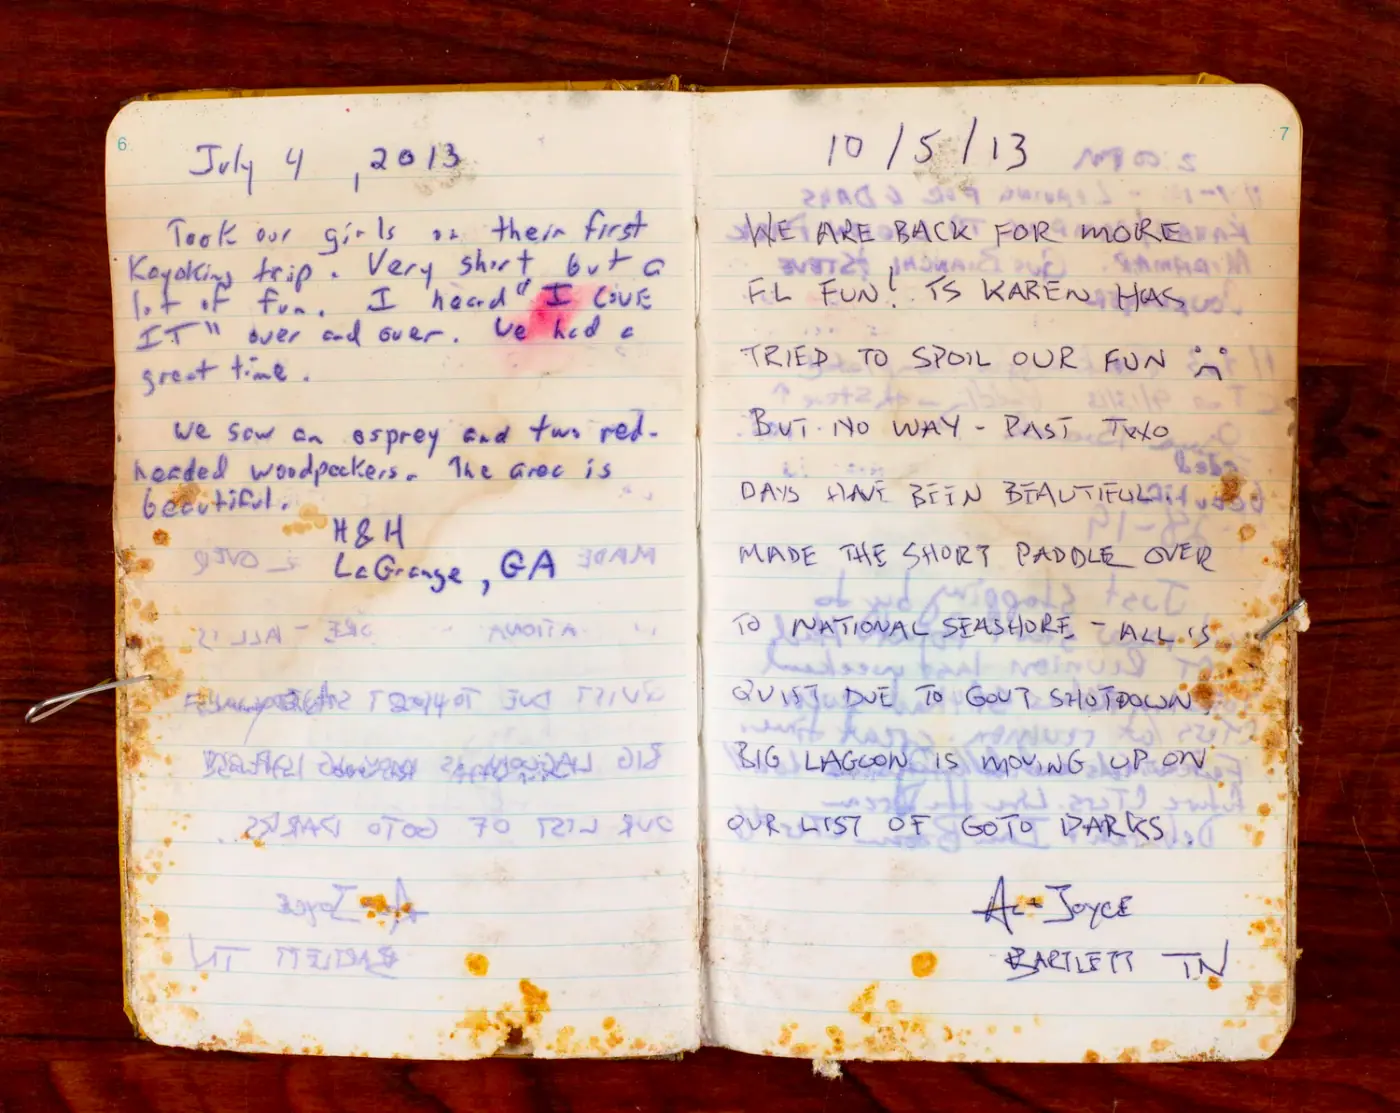 6
July 4, 2013
Took our girls on their first
Kayaking trip. Very short but a
lot of fun. I heard "I LOVE
IT" over and over. We had a
great time.
We saw an osprey and two red-
headed woodpeckers. The area is
beautiful.
H&H
LaGrange, GA
7
10/5/13
WE ARE BACK FOR MORE
FL FUN! TS KAREN HAS
TRIED TO SPOIL OUR FUN
BUT NO WAY - PAST TWO
DAYS HAVE BEEN BEAUTIFUL.
MADE THE SHORT PADDLE OVER
TO NATIONAL SEASHORE - ALL IS
QUIST DUE TO GOUT SHUTDOWN.
BIG LAGOON IS MOVING UP ON
OUR LIST OF GOTO PARKS.
AL + JOYCE
BARTLETT TN